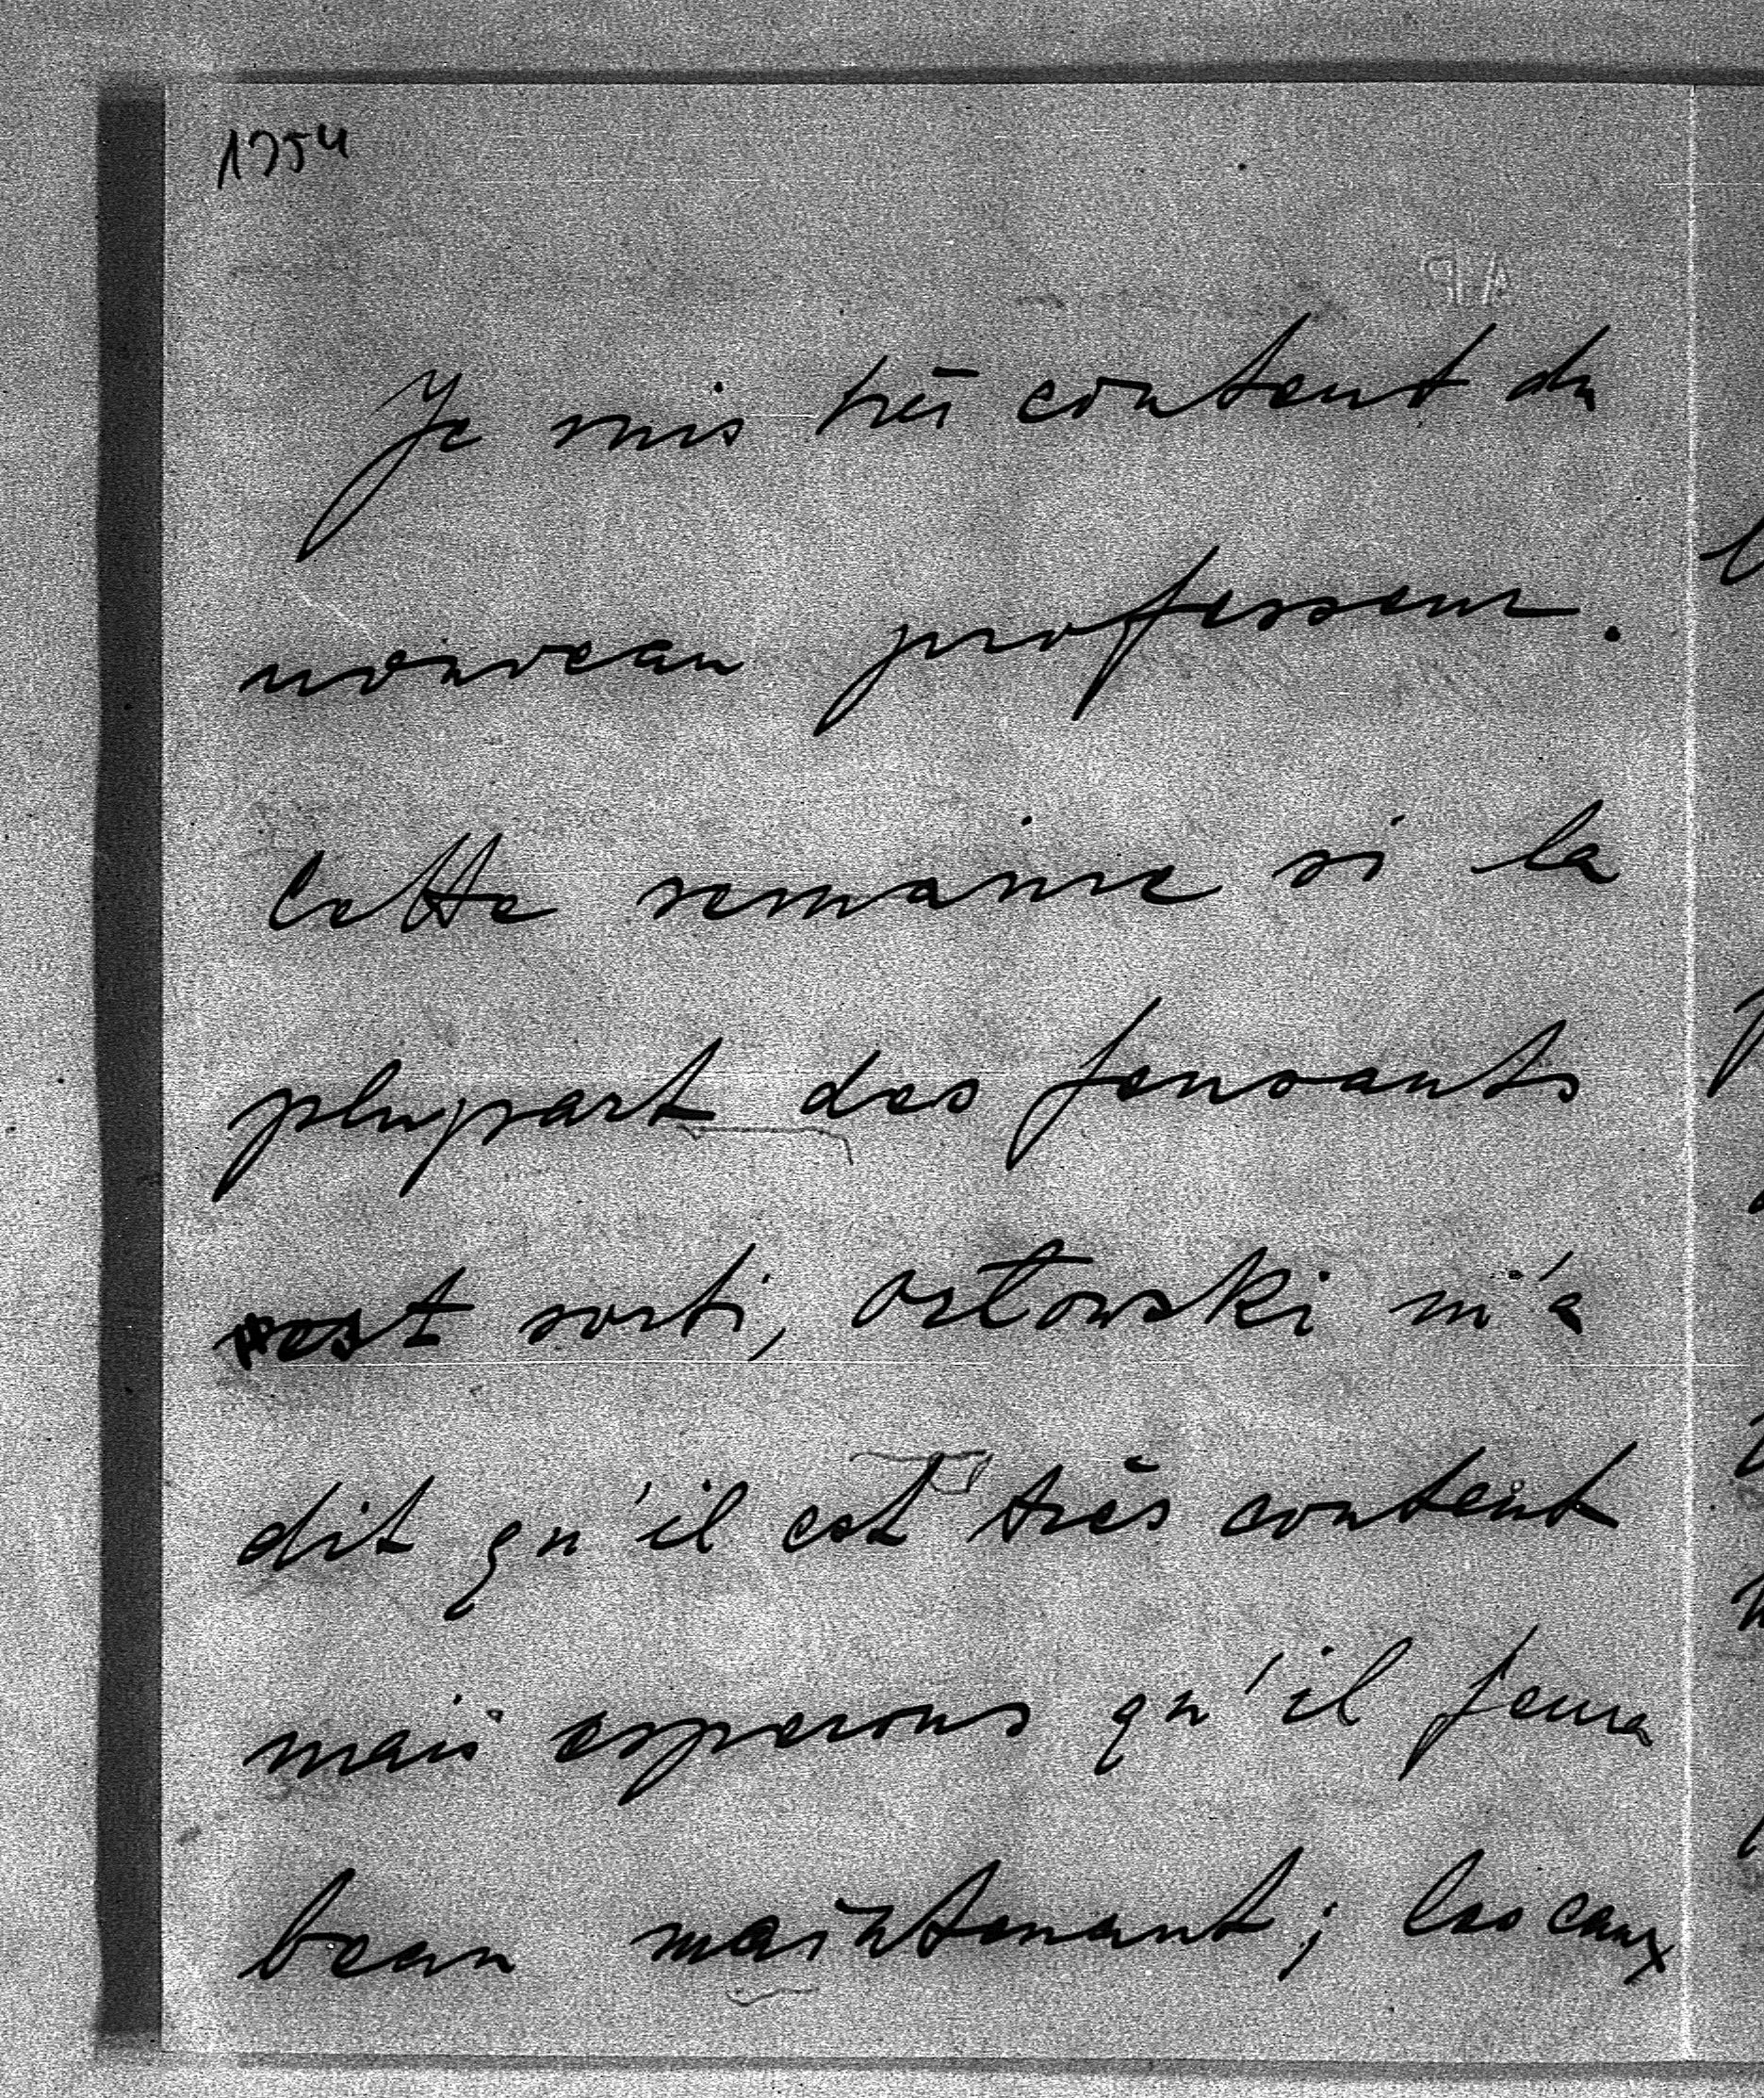 1754
Je suis très content du
nouveau professeur.
Cette semaine si la
plupart des
est sorti, Orłowski m'a
dit qu'il est très content
mais esperons qu'il fera
beau maintenant; les eaux